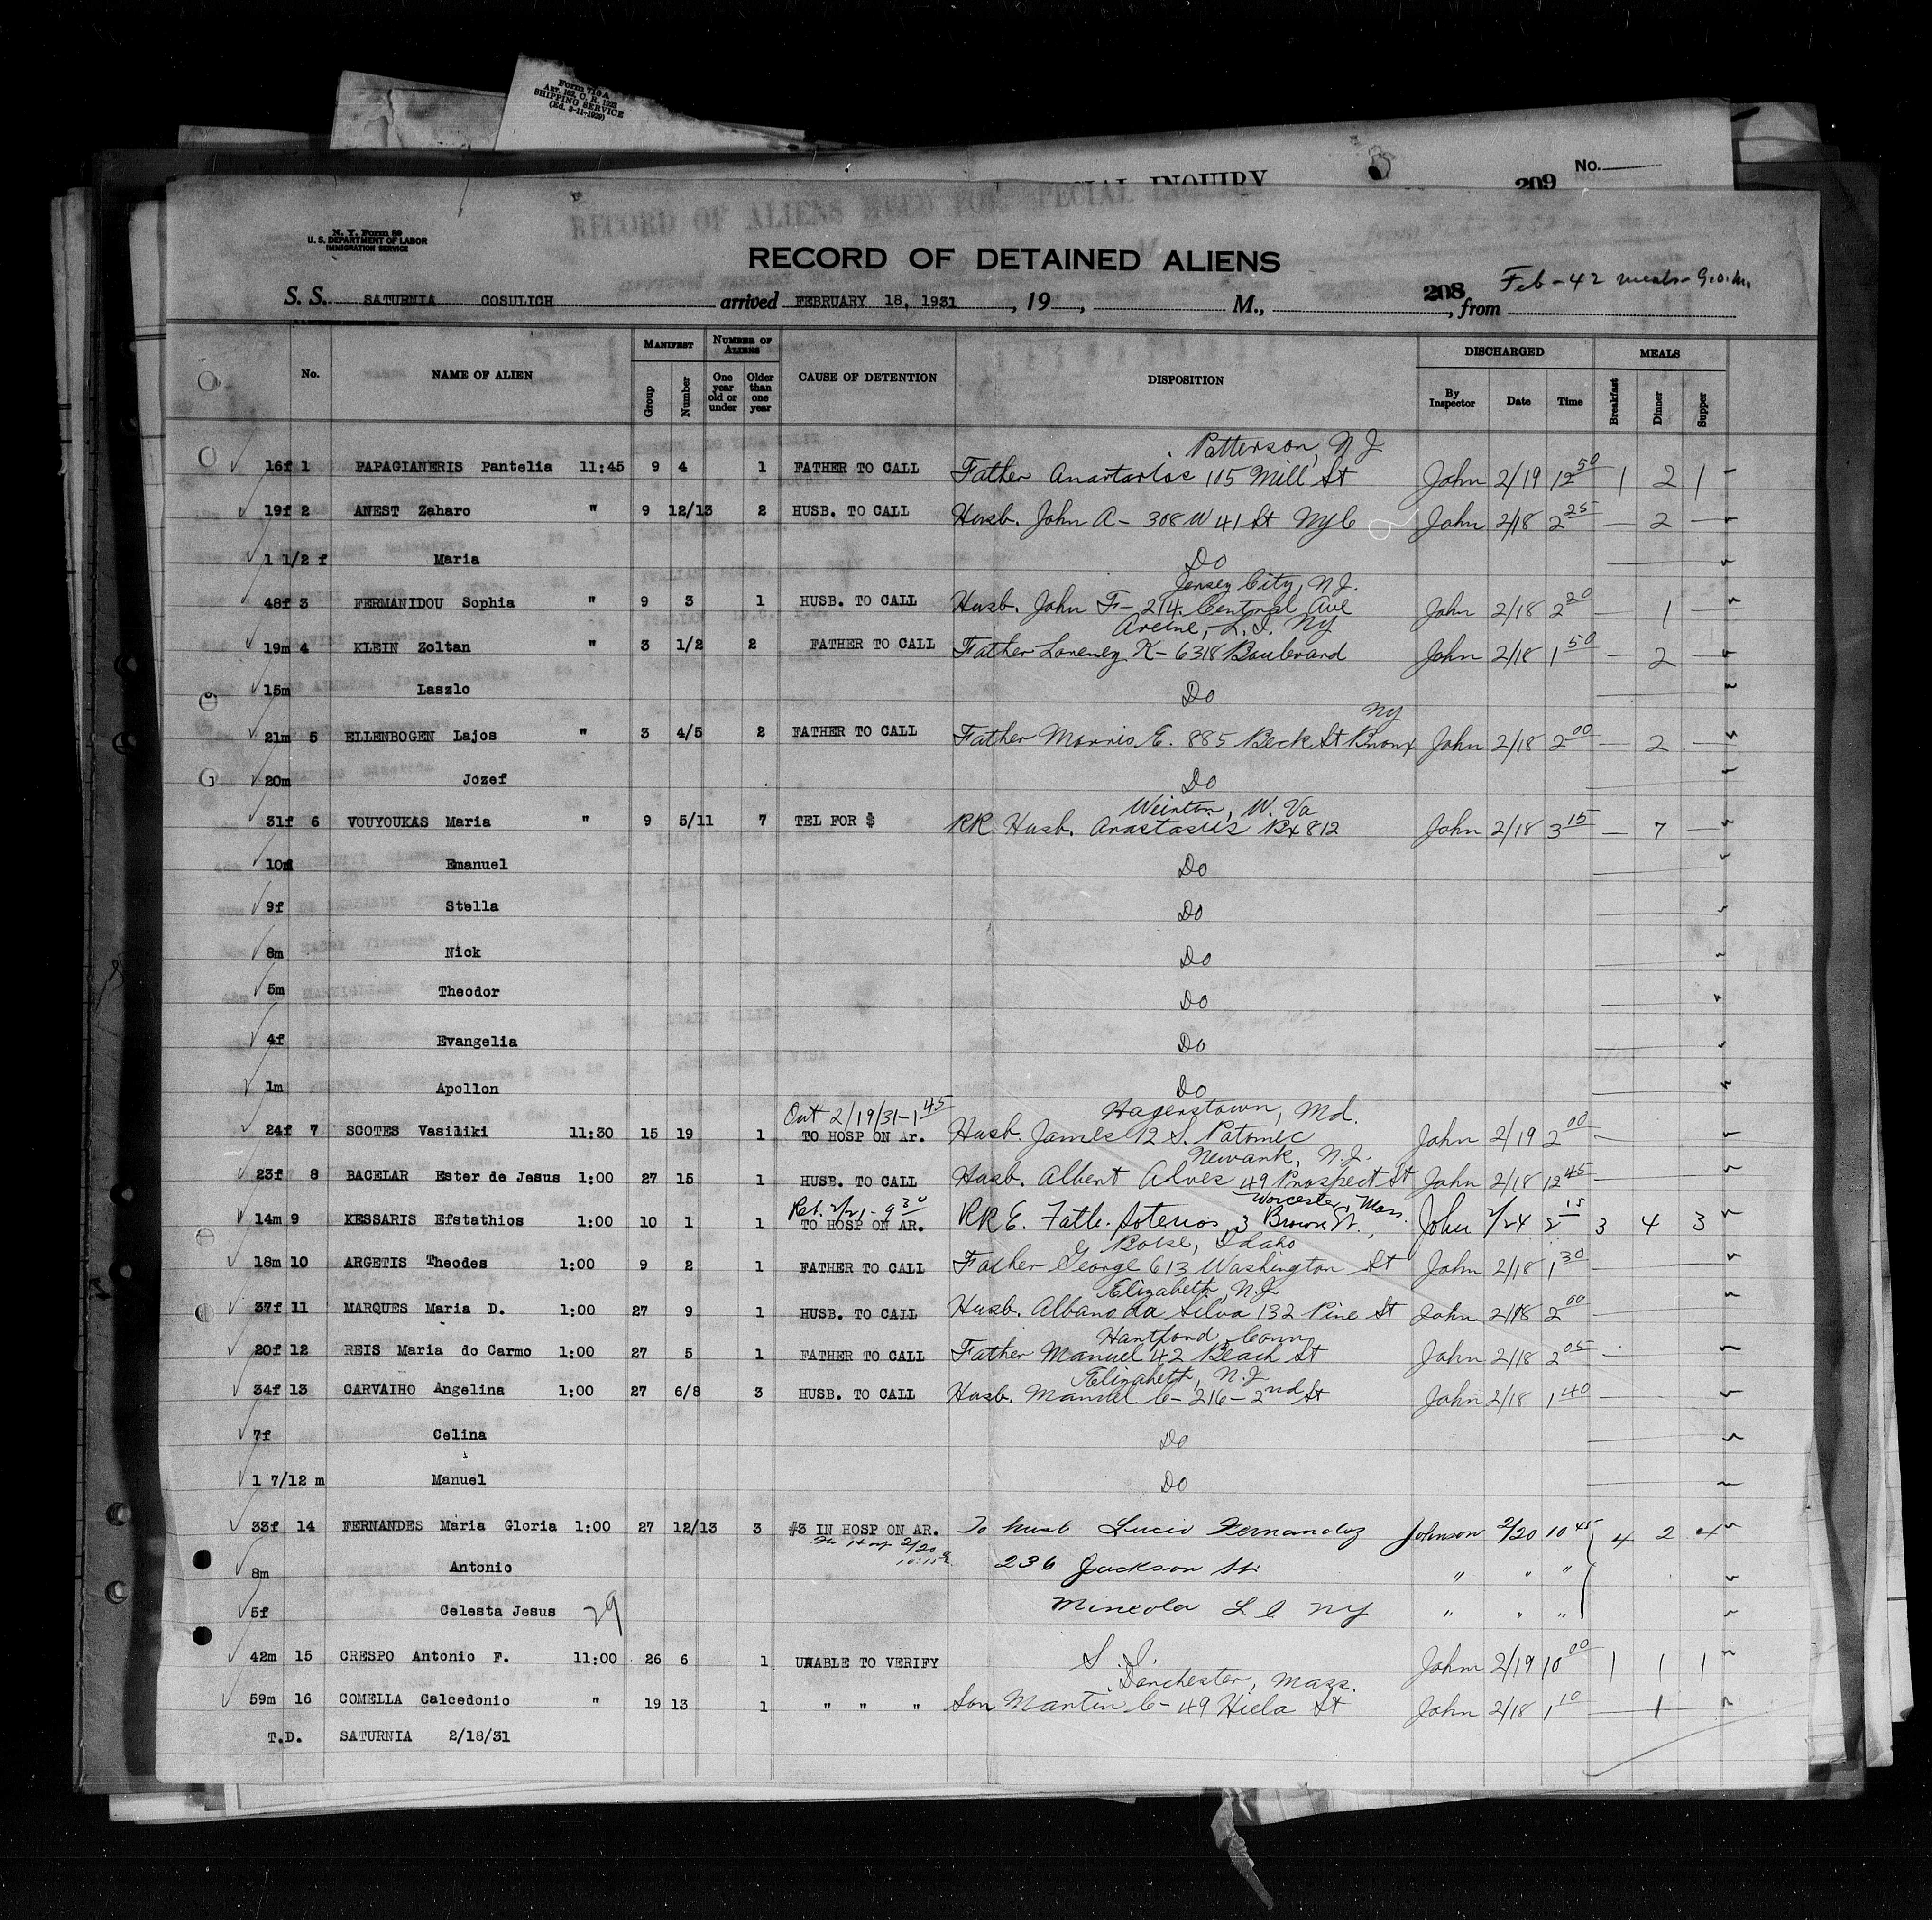 Form 719 A
ART. 163, C. R. 1923
SHIPPING SERVICE
(Ed. 5-11-1929)
SPECIAL INQUIRY
209
No.
RECORD OF ALIENS HELD FOR SPECIAL INQUIRY
N. Y. Form 89
U. S. DEPARTMENT OF LABOR
IMMIGRATION SERVICE
RECORD OF DETAINED ALIENS
S. S. SATURNIA COSULICH arrived FEBRUARY 18, 1931, 19 , M., 208, from Feb - 42 meals - G.O.M.
No. NAME OF ALIEN MANIFEST Group Number NUMBER OF ALIENS One year old or under Older than one year CAUSE OF DETENTION DISPOSITION DISCHARGED By Inspector Date Time MEALS Breakfast Dinner Supper
Patterson, N J
16f 1 PAPAGIANERIS Pantelia 11:45 9 4 1 FATHER TO CALL Father 105 Mill St John 2/19 12 50 1 2 1
19f 2 ANEST Zaharo " 9 12/13 2 HUSB. TO CALL Husb. John A - 308 W 41 St NyC John 2/18 2 25 — 2 —
1 1/2 f Maria Do
Jersey City, N.J.
48f 3 FERMANIDOU Sophia " 9 3 1 HUSB. TO CALL Husb. John F - 214 Central Ave John 2/18 2 20 — 1 —
L. I. Ny
19m 4 KLEIN Zoltan " 3 1/2 2 FATHER TO CALL Father K - 6318 Boulevard John 2/18 1 50 — 2 —
15m Laszlo Do
Ny
21m 5 ELLENBOGEN Lajos " 3 4/5 2 FATHER TO CALL Father Morris E. 885 Beck St Bronx John 2/18 2 00 — 2 —
20m Jozef Do
Weirton, W. Va
31f 6 VOUYOUKAS Maria " 9 5/11 7 TEL FOR $ RR Husb. Anastasiis Bx 812 John 2/18 3 15 — 7 —
10m Emanuel Do
9f Stella Do
8m Nick Do
5m Theodor Do
4f Evangelia Do
1m Apollon Do
Out 2/19/31 - 1 45 Hagerstown, Md.
24f 7 SCOTES Vasiliki 11:30 15 19 1 TO HOSP ON Ar. Husb. James 12 S. Patomic John 2/19 2 00 —
Newark, N.J.
23f 8 BACELAR Ester de Jesus 1:00 27 15 1 HUSB. TO CALL Husb. Albert Alves 49 Prospect St John 2/18 12 45 —
Ret. 2/21 - 9 30 Worcester, Mass.
14m 9 KESSARIS Efstathios 1:00 10 1 1 TO HOSP ON AR. RR E. Fath. Soterios, 3 Brown St., John 2/24 2 15 3 4 3
Boise, Idaho
18m 10 ARGETIS Theodes 1:00 9 2 1 FATHER TO CALL Father George 613 Washington St John 2/18 1 30 —
Elizabeth, N.J
37f 11 MARQUES Maria D. 1:00 27 9 1 HUSB. TO CALL Husb. Albano da Silva 132 Pine St John 2/18 2 00 —
Hartford, Conn
20f 12 REIS Maria do Carmo 1:00 27 5 1 FATHER TO CALL Father Manuel 42 Beach St John 2/18 2 05 —
Elizabeth, N.J
34f 13 CARVAIHO Angelina 1:00 27 6/8 3 HUSB. TO CALL Husb. Manuel C - 216 - 2nd St John 2/18 1 40 —
7f Celina Do
1 7/12 m Manuel Do
33f 14 FERNANDES Maria Gloria 1:00 27 12/13 3 #3 IN HOSP ON AR. To husb Lucio Fernandez Johnson 2/20 10 45 4 2 4
2/20
8m Antonio 236 Jackson St. " " "
5f Celesta Jesus 29 Mineola L I NY " " "
42m 15 CRESPO Antonio F. 11:00 26 6 1 UNABLE TO VERIFY S. I. John 2/19 10 00 1 1 1
Dorchester, Mass.
59m 16 COMELLA Calcedonio " 19 13 1 " " " Son Martin C - 49 Hecla St John 2/18 1 10 — 1 —
T.D. SATURNIA 2/18/31